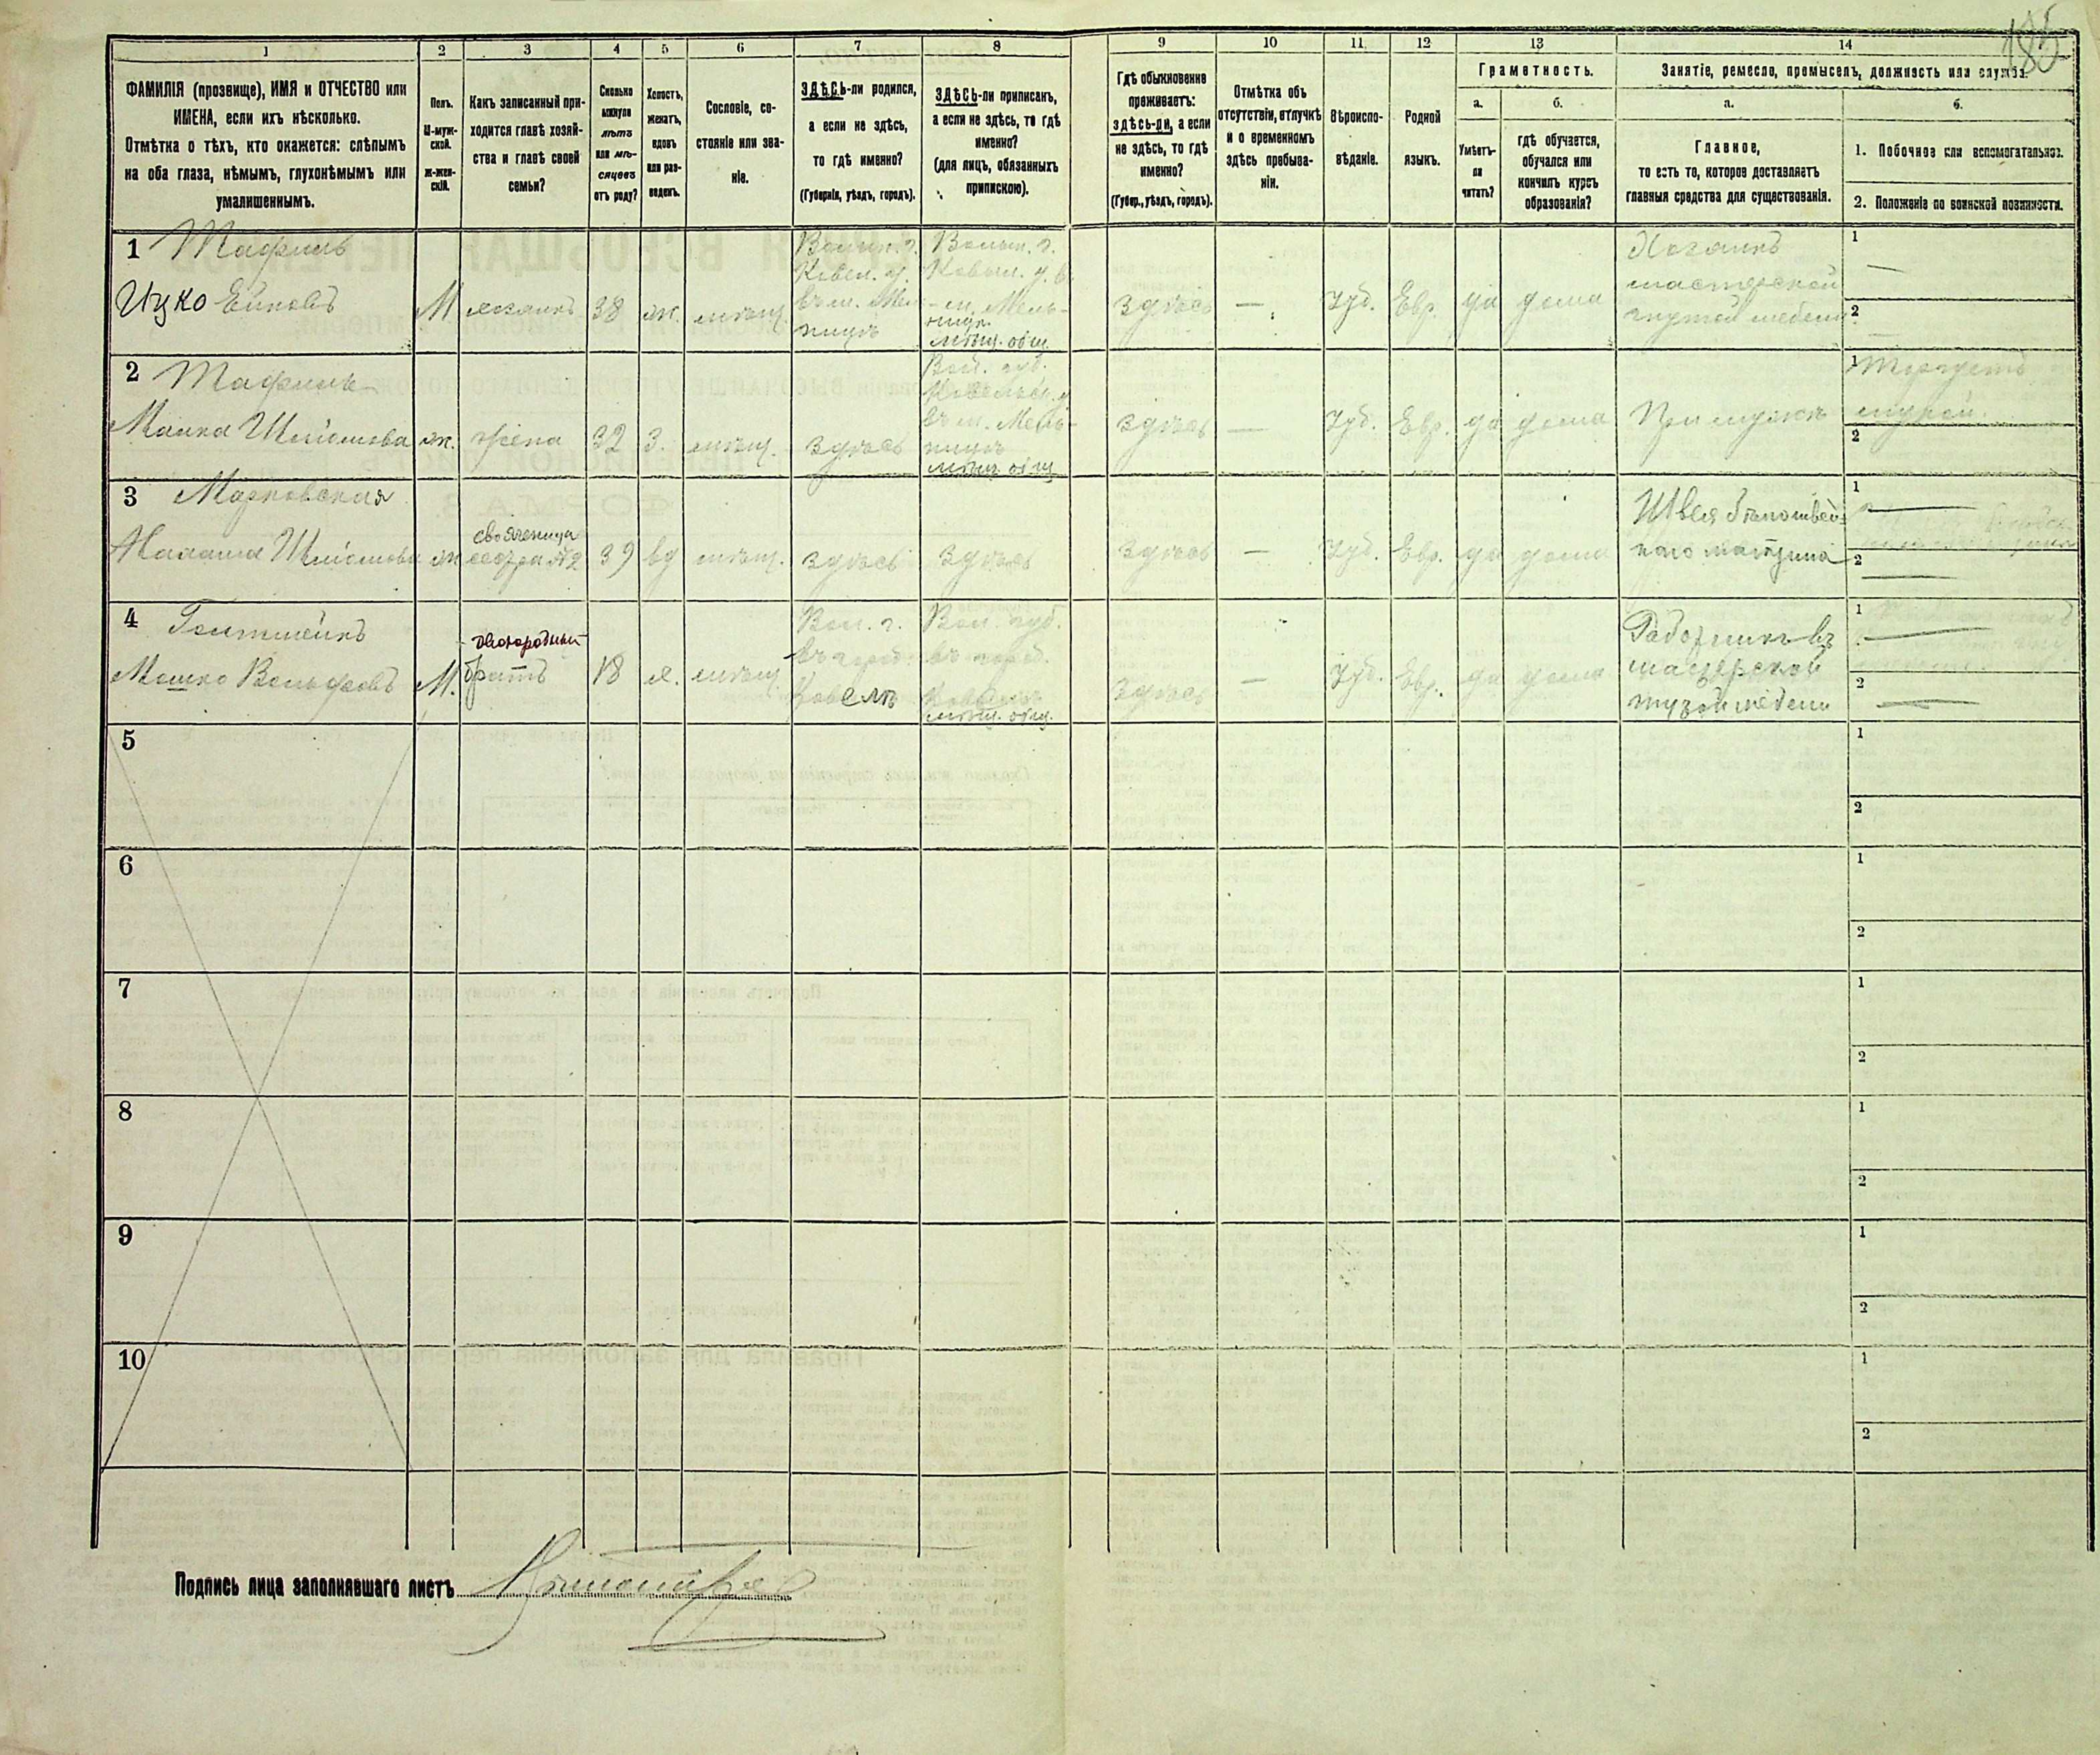 185
1 2 3 4 5 6 7 8 9 10 11 12 13 14
ФАМИЛІЯ (прозвище), ИМЯ и ОТЧЕСТВО или
ИМЕНА, если ихъ нѣсколько.
Отмѣтка о тѣхъ, кто окажется: слѣпымъ
на оба глаза, нѣмымъ, глухонѣмымъ или
умалишеннымъ.
Полъ.
М-муж-
ской.
Ж-жен-
скій.
Какъ записанный при-
ходится главѣ хозяй-
ства и главѣ своей
семьи?
Сколько
минуло
лѣтъ
или мѣ-
сяцевъ
отъ роду?
Холостъ,
женатъ,
вдовъ
или раз-
веденъ.
Сословіе, со-
стояніе или зва-
ніе.
ЗДѢСЬ-ли родился,
а если не здѣсь,
то гдѣ именно?
(Губернія, уѣздъ, городъ).
ЗДѢСЬ-ли приписанъ,
а если не здѣсь, то гдѣ
именно?
(для лицъ, обязанныхъ
припискою).
Гдѣ обыкновенно
проживаетъ:
здѣсь-ли, а если
не здѣсь, то гдѣ
именно?
(Губер., уѣздъ, городъ).
Отмѣтка объ
отсутствіи, отлучкѣ
и о временномъ
здѣсь пребыва-
ніи.
Вѣроиспо-
вѣданіе.
Родной
языкъ.
Грамотность.
а.
Умѣетъ-
ли
читать?
б.
гдѣ обучается,
обучался или
кончилъ курсъ
образованія?
Занятіе, ремесло, промыселъ, должность или служба.
а.
Главное,
то есть то, которое доставляетъ
главныя средства для существованія.
б.
1. Побочное или вспомогательное.
2. Положеніе по воинской повинности.
1 Тафель
Ицко Ейновъ
М хозяинъ 38 ж. мѣщ.
Волын. г.
Ковел. у.
въ м. Мель-
ницѣ
Волын. г.
Ковел. у. въ
м. Мель-
ницѣ
мѣщ. общ.
здѣсь — Іуд. Евр. да дома
Хозяинъ
мастерской
гнутой мебели
1 —
2 —
2 Тафель
Малка Шлiомова
ж. жена 32 з. мѣщ. здѣсь
Вол. губ.
Ковельск. у.
въ м. Мель-
ницѣ
мѣщ. общ.
здѣсь — Іуд. Евр. да дома
При мужѣ
1 Торгуетъ
мукой.
2
3 Марковская
Шлiомова
ж
свояченица
сестра №2
39 вд мѣщ. здѣсь здѣсь
здѣсь — Іуд. Евр. да дома
Швея бѣлошвей-
наго магазина
1 —
2 —
4 Гольтшейнъ
Мошко Вольфовъ
М.
двоюродный
братъ
18 х. мѣщ
Вол. г.
въ город.
Ковелѣ
Вол. губ.
въ город.
Ковелѣ
мѣщ. общ.
здѣсь — Іуд. Евр. да дома
Работникъ въ
мастерской
гнутой мебели
1 —
2 —
5 1
2
6 1
2
7 1
2
8 1
2
9 1
2
10 1
2
Подпись лица заполнявшаго листъ